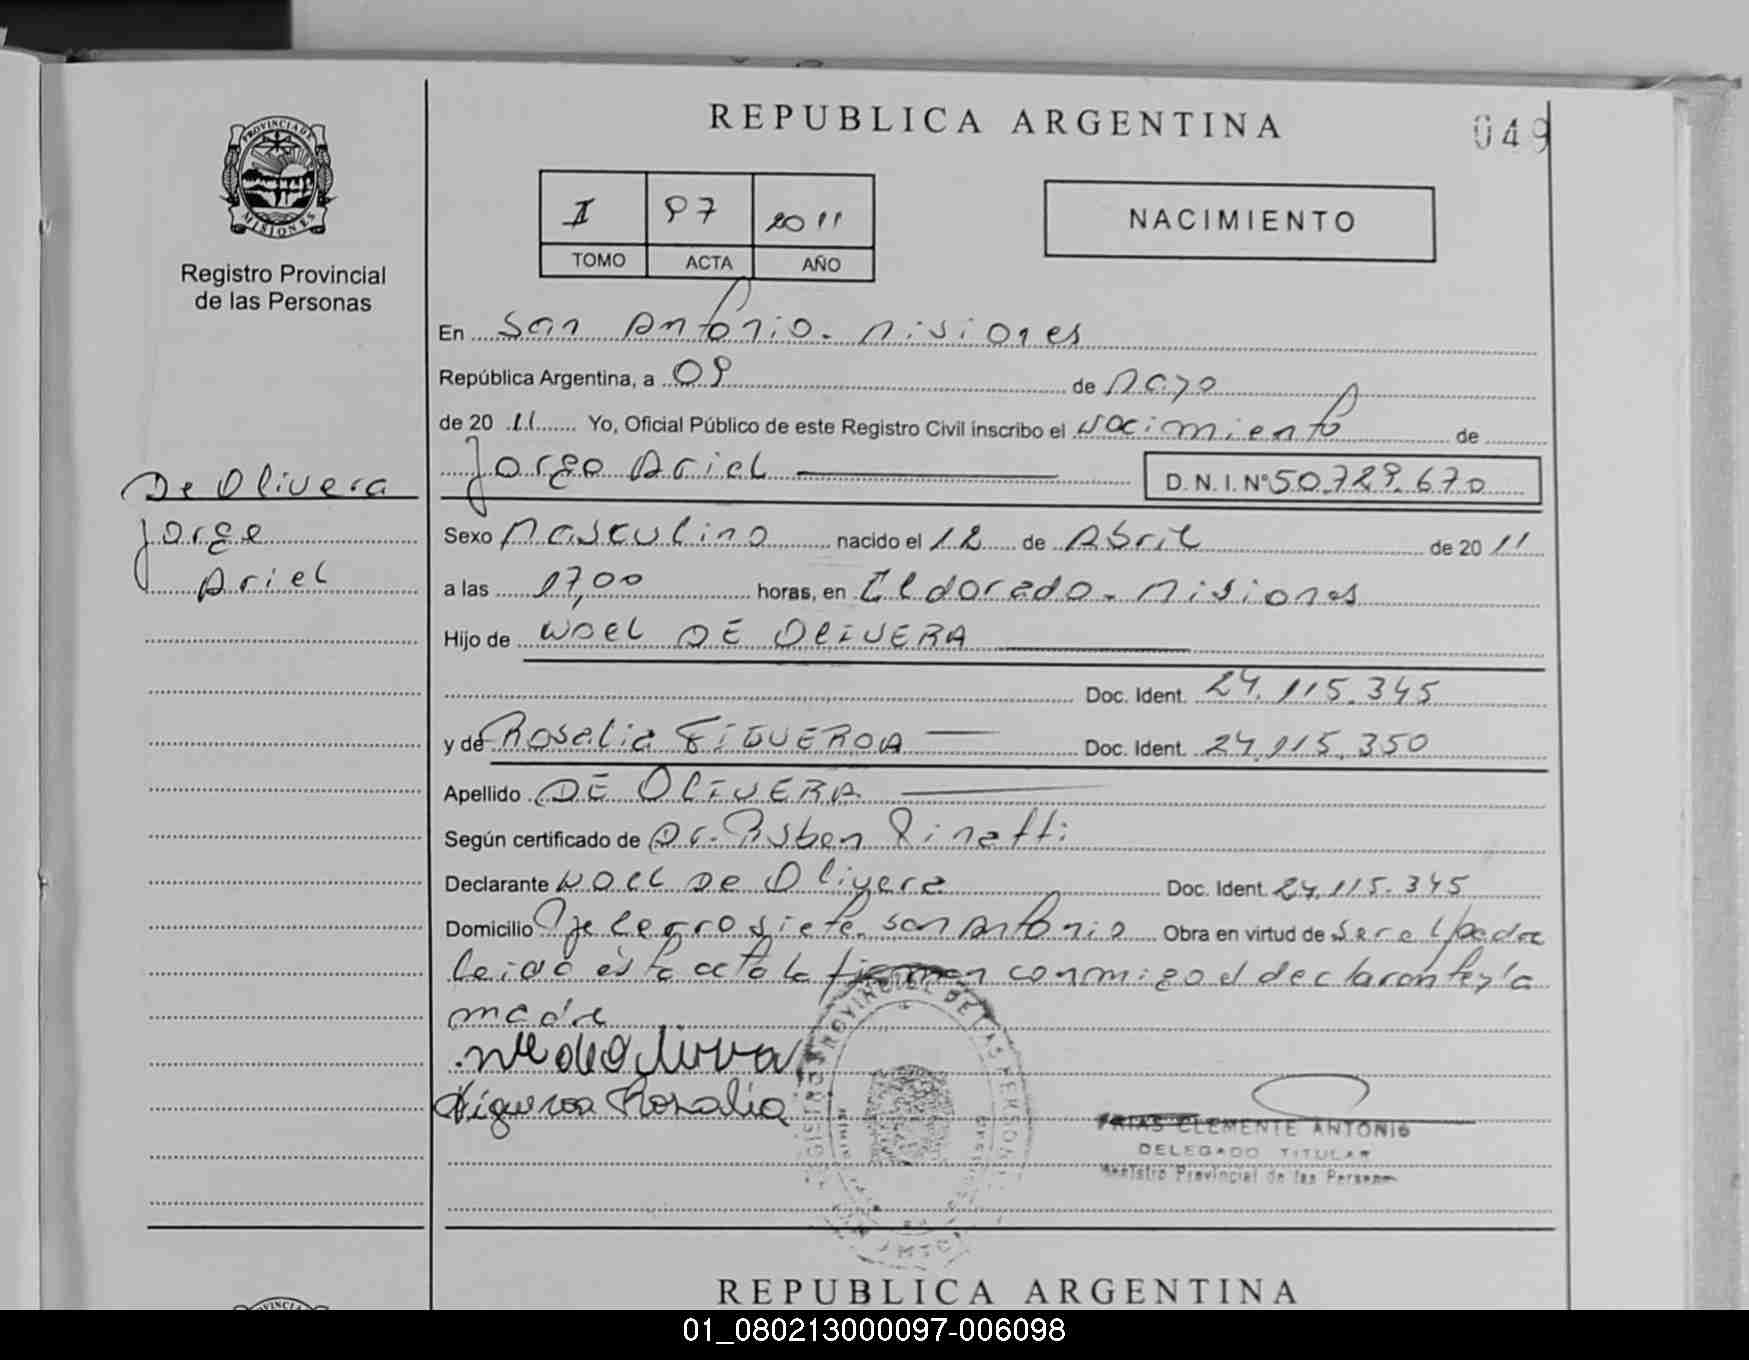 REPUBLICA ARGENTINA
049
PROVINCIA DE
MISIONES
Registro Provincial
de las Personas
I 97 2011
TOMO ACTA AÑO
NACIMIENTO
En San Antonio. Misiones
República Argentina, a 09 de Mayo
de 20 11 Yo, Oficial Público de este Registro Civil inscribo el Nacimiento de
Jorge Ariel D. N. I. Nº 50.729.670
De Olivera
Jorge
Ariel
Sexo Masculino nacido el 12 de Abril de 20 11
a las 17,00 horas, en Eldorado. Misiones
Hijo de NOEL DE OLIVERA
Doc. Ident. 24.115.345
y de Rosalia FIGUEROA Doc. Ident. 24.115.350
Apellido DE OLIVERA
Según certificado de Dr. Ruben
Declarante NOEL De Olivera Doc. Ident. 24.115.345
Domicilio Pje Cerro siete. San Antonio Obra en virtud de Ser el padre
leida esta acta la firman conmigo el declarante y la
madre
Figueroa Rosalia
REGISTRO PROVINCIAL DE LAS PERSONAS
FRIAS CLEMENTE ANTONIO
DELEGADO TITULAR
Registro Provincial de las Personas
REPUBLICA ARGENTINA
01_080213000097-006098